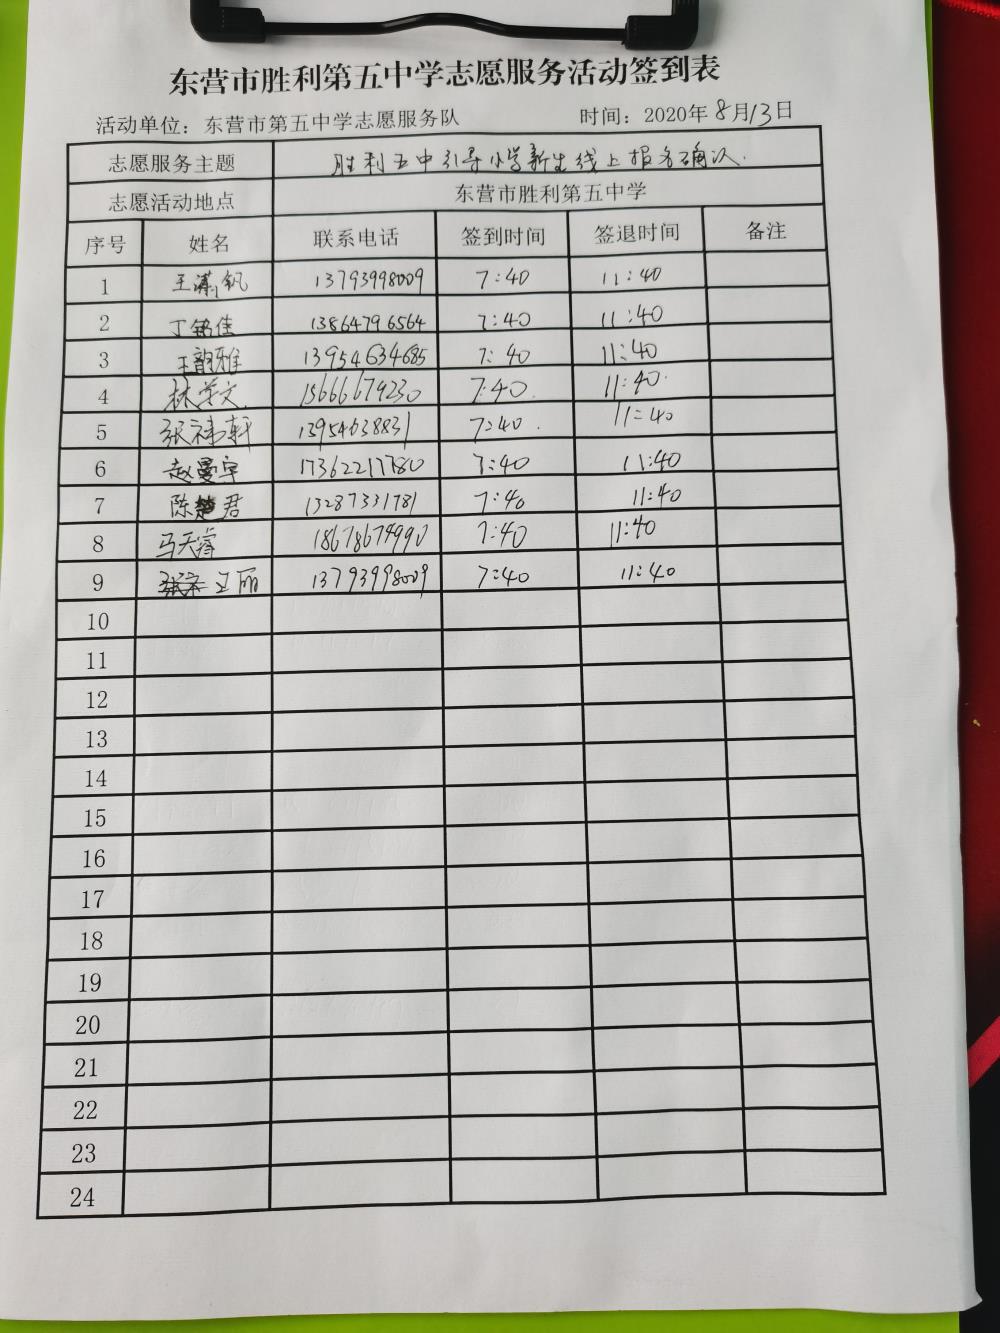 东营市胜利第五中学志愿服务活动签到表
活动单位：东营市第五中学志愿服务队 时间：2020年8月13日
志愿服务主题 胜利五中引导小学新生线上报名确认.
志愿活动地点 东营市胜利第五中学
序号 姓名 联系电话 签到时间 签退时间 备注
1 王潇钒 13793998009 7:40 11:40
2 丁铭佳 13864796564 7:40 11:40
3 王韵雅 13954634685 7:40 11:40
4 林 文 15666679230 7:40. 11:40.
5 张祎轩 13954638831 7:40. 11:40
6 赵曼宇 17362217780 7:40 11:40
7 陈楚君 13287331781 7:40 11:40
8 马天睿 18678674990 7:40 11:40
9 丽 13793998009 7:40 11:40
10
11
12
13
14
15
16
17
18
19
20
21
22
23
24